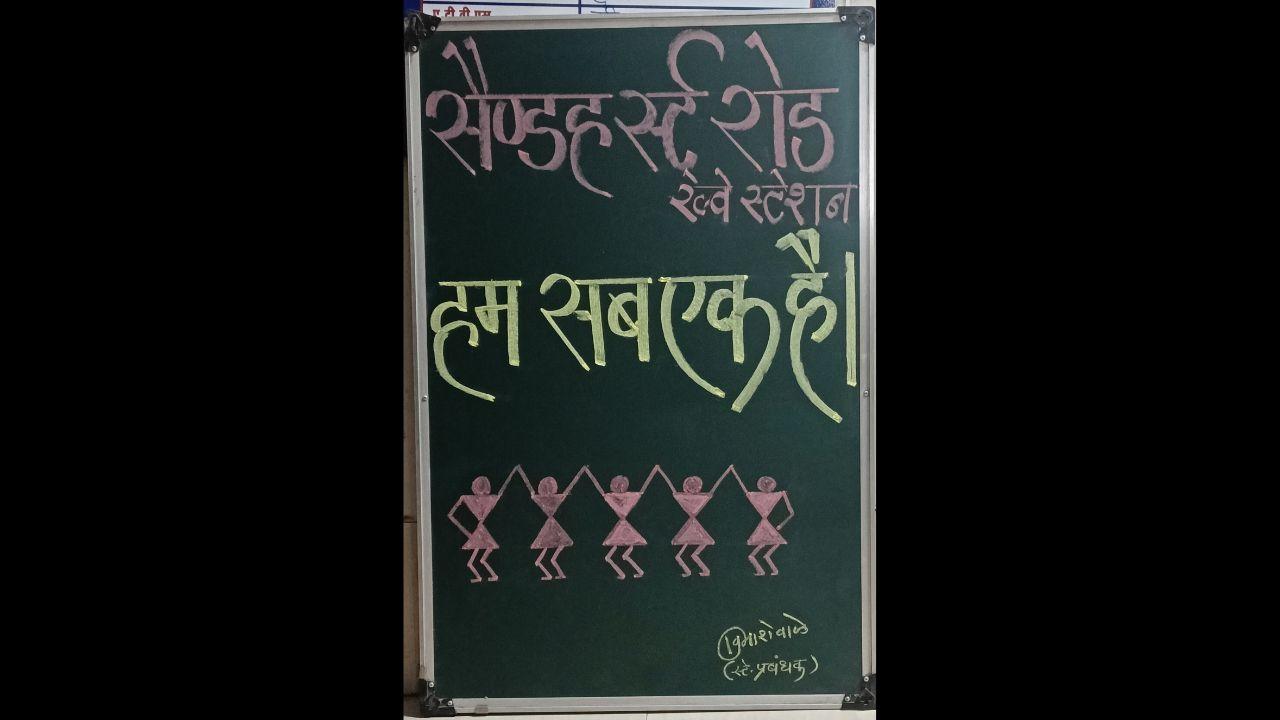 ए टी वी एम
सैण्डहर्स्ट्र रोड
रेल्वे स्टेशन
हम सब एक है।
(स्टे. प्रबंधक)